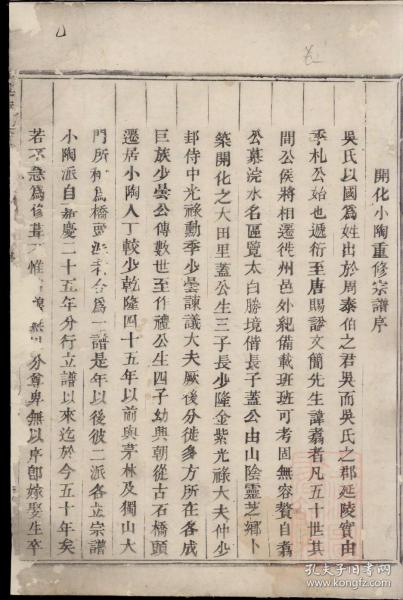 開化小陶重修宗譜序
吳氏以國爲姓出於周泰伯之君吳而吳氏之郡延陵實由
季札公始也遞衍至唐賜諡文簡先生諱翥者凡五十世其
間公侯將相遷徙州邑外紀備載班班可考固無容贅自翥
公慕浣水名區覽太白勝境偕長子蓋公由山陰靈芝鄉卜
築開化之大田里蓋公生三子長少隆金紫光祿大夫仲少
邽侍中光祿勳季少曇諫議大夫厥後分徙多方所在各成
巨族少曇公傳數世至作禮公生四子幼興朝從古石橋頭
遷居小陶人丁較少乾隆四十五年以前與茅林及獨山大
門所稱爲橋頭派者合爲一譜是年以後彼二派各立宗譜
小陶派自嘉慶二十五年分行立譜以來迄於今五十年矣
若不急爲修葺不惟 分尊卑無以序卽嫁娶生卒
孔夫子旧书网
www.kongfz.com